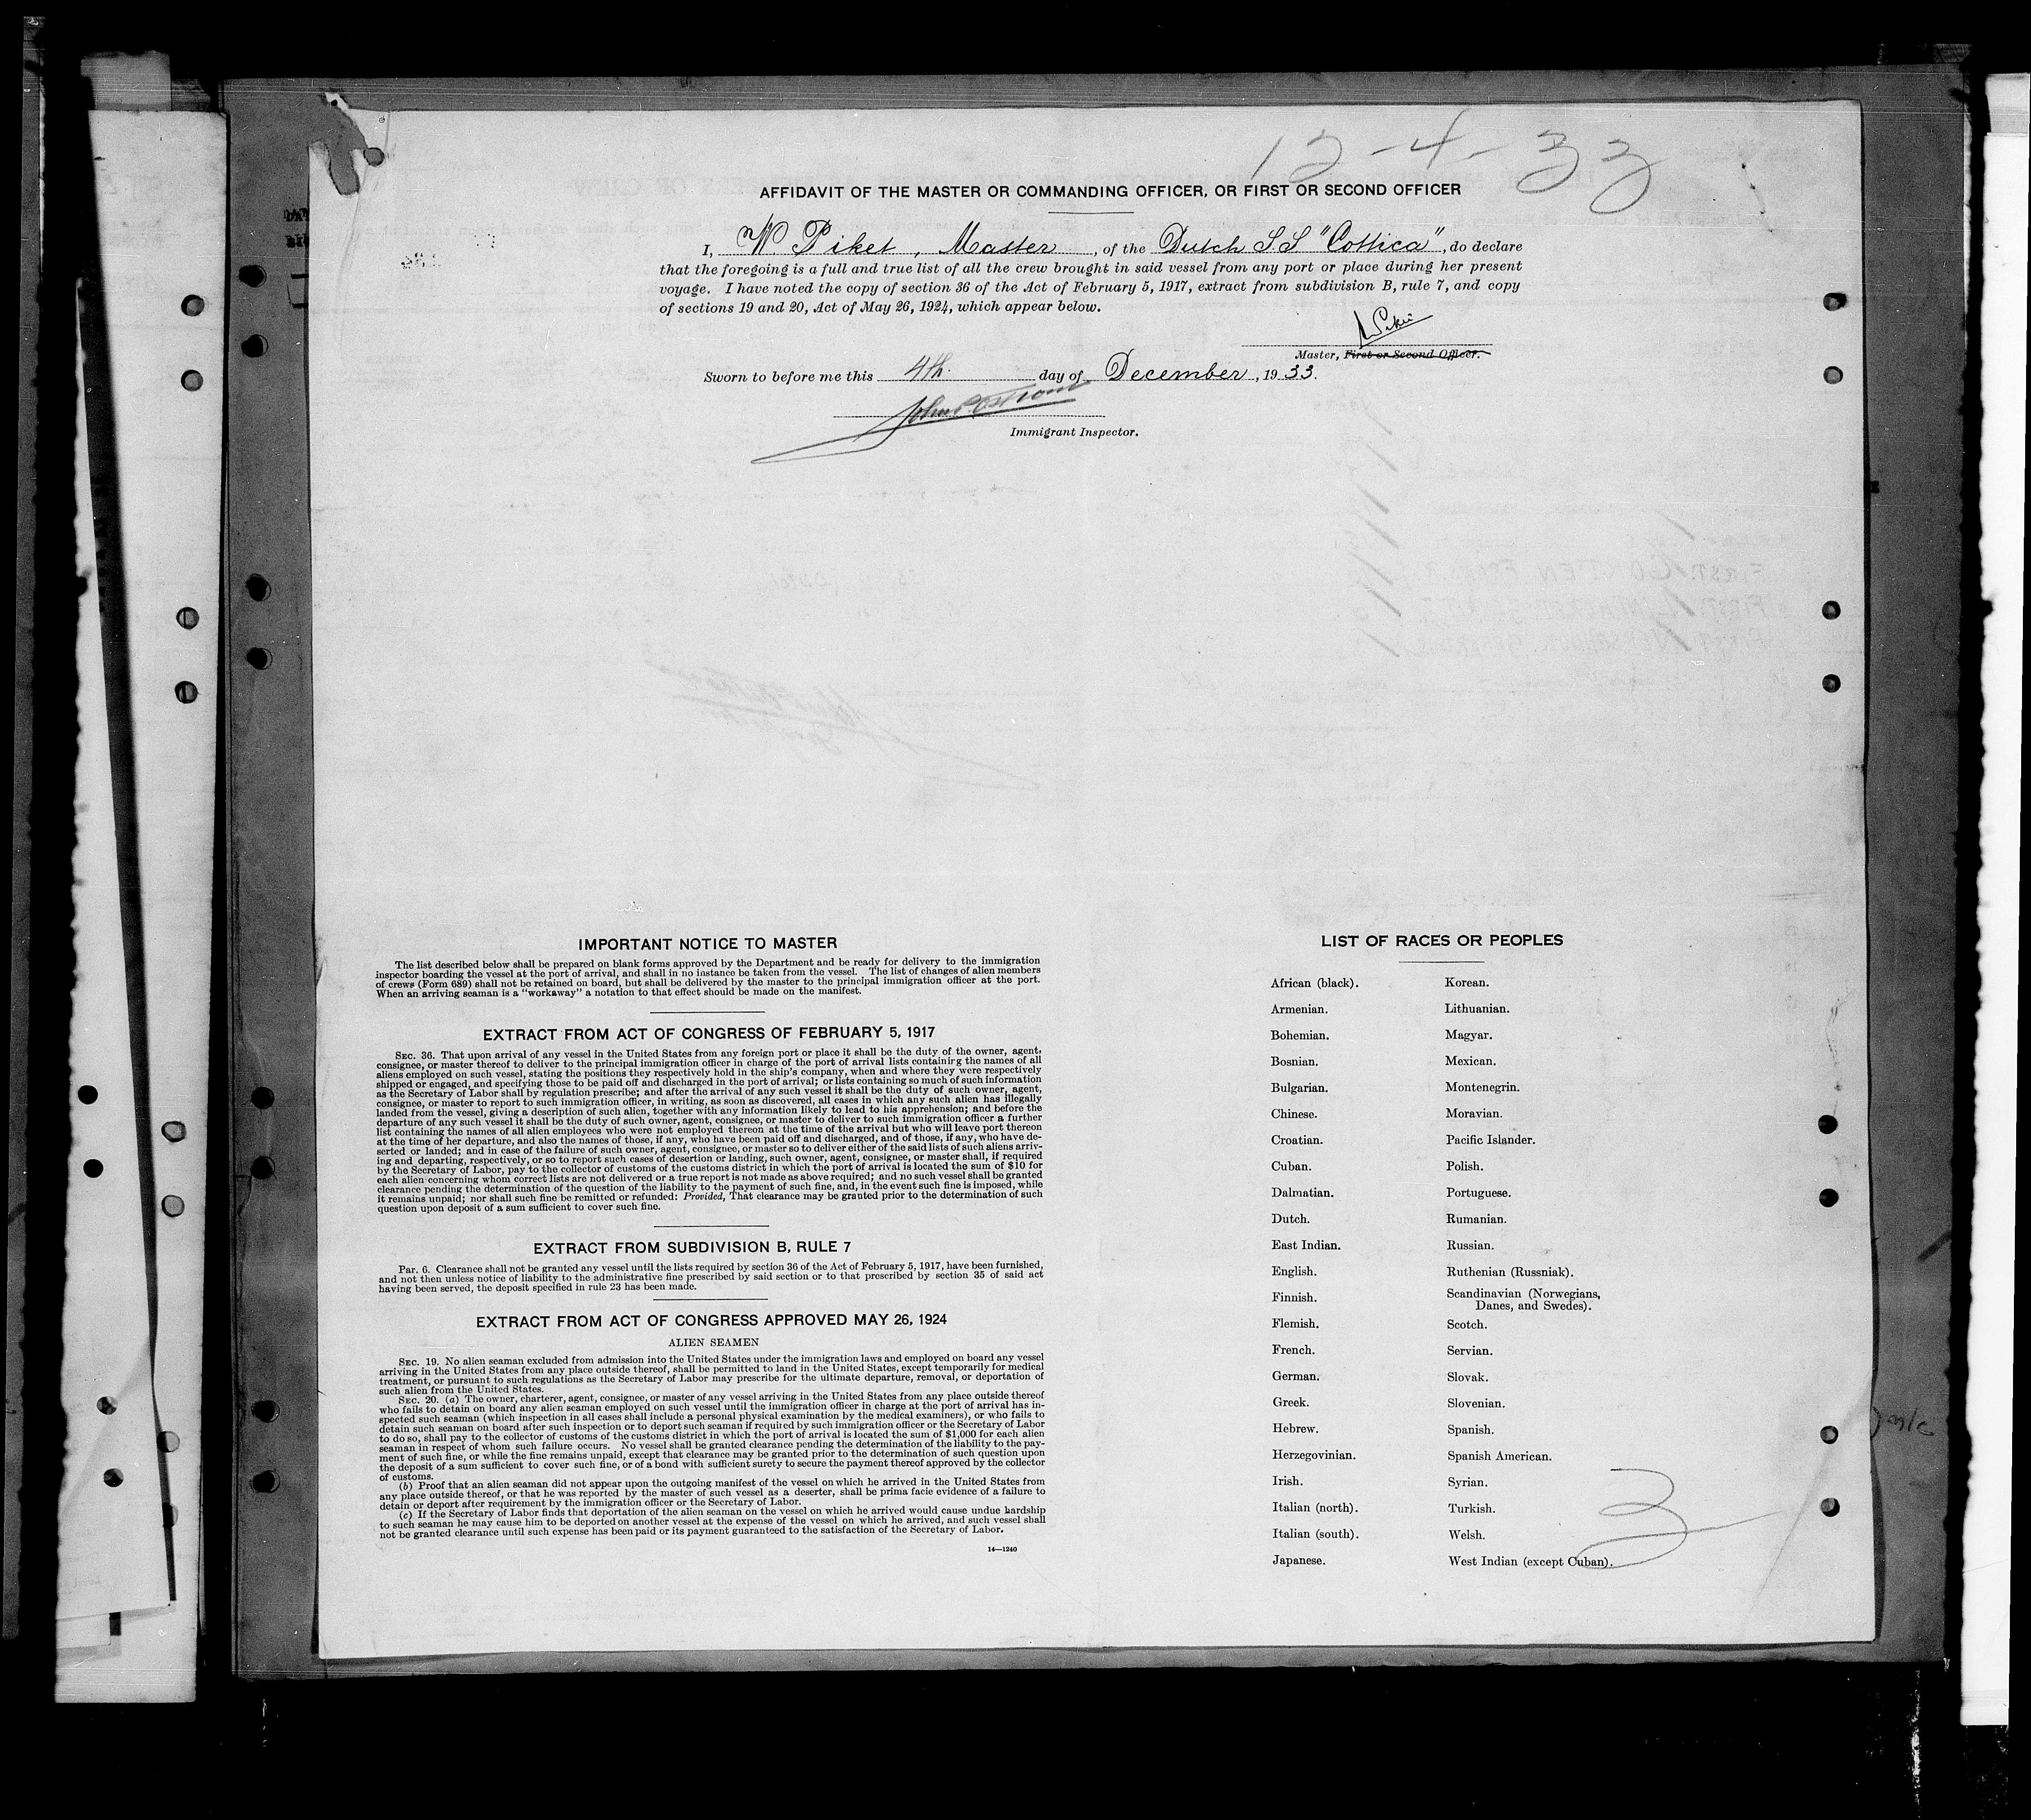 12-4-33
AFFIDAVIT OF THE MASTER OR COMMANDING OFFICER, OR FIRST OR SECOND OFFICER
I, W. Piket, Master, of the Dutch S.S "Cottica", do declare
that the foregoing is a full and true list of all the crew brought in said vessel from any port or place during her present
voyage. I have noted the copy of section 36 of the Act of February 5, 1917, extract from subdivision B, rule 7, and copy
of sections 19 and 20, Act of May 26, 1924, which appear below.
Master, First or Second Officer.
Sworn to before me this 4th. day of December, 1933.
Immigrant Inspector.
IMPORTANT NOTICE TO MASTER
The list described below shall be prepared on blank forms approved by the Department and be ready for delivery to the immigration
inspector boarding the vessel at the port of arrival, and shall in no instance be taken from the vessel. The list of changes of alien members
of crews (Form 689) shall not be retained on board, but shall be delivered by the master to the principal immigration officer at the port.
When an arriving seaman is a "workaway" a notation to that effect should be made on the manifest.
EXTRACT FROM ACT OF CONGRESS OF FEBRUARY 5, 1917
SEC. 36. That upon arrival of any vessel in the United States from any foreign port or place it shall be the duty of the owner, agent,
consignee, or master thereof to deliver to the principal immigration officer in charge of the port of arrival lists containing the names of all
aliens employed on such vessel, stating the positions they respectively hold in the ship's company, when and where they were respectively
shipped or engaged, and specifying those to be paid off and discharged in the port of arrival; or lists containing so much of such information
as the Secretary of Labor shall by regulation prescribe; and after the arrival of any such vessel it shall be the duty of such owner, agent,
consignee, or master to report to such immigration officer, in writing, as soon as discovered, all cases in which any such alien has illegally
landed from the vessel, giving a description of such alien, together with any information likely to lead to his apprehension; and before the
departure of any such vessel it shall be the duty of such owner, agent, consignee, or master to deliver to such immigration officer a further
list containing the names of all alien employees who were not employed thereon at the time of the arrival but who will leave port thereon
at the time of her departure, and also the names of those, if any, who have been paid off and discharged, and of those, if any, who have de-
serted or landed; and in case of the failure of such owner, agent, consignee, or master so to deliver either of the said lists of such aliens arriv-
ing and departing, respectively, or so to report such cases of desertion or landing, such owner, agent, consignee, or master shall, if required
by the Secretary of Labor, pay to the collector of customs of the customs district in which the port of arrival is located the sum of $10 for
each alien concerning whom correct lists are not delivered or a true report is not made as above required; and no such vessel shall be granted
clearance pending the determination of the question of the liability to the payment of such fine, and, in the event such fine is imposed, while
it remains unpaid; nor shall such fine be remitted or refunded: Provided, That clearance may be granted prior to the determination of such
question upon deposit of a sum sufficient to cover such fine.
EXTRACT FROM SUBDIVISION B, RULE 7
PAR. 6. Clearance shall not be granted any vessel until the lists required by section 36 of the Act of February 5, 1917, have been furnished,
and not then unless notice of liability to the administrative fine prescribed by said section or to that prescribed by section 35 of said act
having been served, the deposit specified in rule 23 has been made.
EXTRACT FROM ACT OF CONGRESS APPROVED MAY 26, 1924
ALIEN SEAMEN
SEC. 19. No alien seaman excluded from admission into the United States under the immigration laws and employed on board any vessel
arriving in the United States from any place outside thereof, shall be permitted to land in the United States, except temporarily for medical
treatment, or pursuant to such regulations as the Secretary of Labor may prescribe for the ultimate departure, removal, or deportation of
such alien from the United States.
SEC. 20. (a) The owner, charterer, agent, consignee, or master of any vessel arriving in the United States from any place outside thereof
who fails to detain on board any alien seaman employed on such vessel until the immigration officer in charge at the port of arrival has in-
spected such seaman (which inspection in all cases shall include a personal physical examination by the medical examiners), or who fails to
detain such seaman on board after such inspection or to deport such seaman if required by such immigration officer or the Secretary of Labor
to do so, shall pay to the collector of customs of the customs district in which the port of arrival is located the sum of $1,000 for each alien
seaman in respect of whom such failure occurs. No vessel shall be granted clearance pending the determination of the liability to the pay-
ment of such fine, or while the fine remains unpaid, except that clearance may be granted prior to the determination of such question upon
the deposit of a sum sufficient to cover such fine, or of a bond with sufficient surety to secure the payment thereof approved by the collector
of customs.
(b) Proof that an alien seaman did not appear upon the outgoing manifest of the vessel on which he arrived in the United States from
any place outside thereof, or that he was reported by the master of such vessel as a deserter, shall be prima facie evidence of a failure to
detain or deport after requirement by the immigration officer or the Secretary of Labor.
(c) If the Secretary of Labor finds that deportation of the alien seaman on the vessel on which he arrived would cause undue hardship
to such seaman he may cause him to be deported on another vessel at the expense of the vessel on which he arrived, and such vessel shall
not be granted clearance until such expense has been paid or its payment guaranteed to the satisfaction of the Secretary of Labor.
14—1240
LIST OF RACES OR PEOPLES
African (black). Korean.
Armenian. Lithuanian.
Bohemian. Magyar.
Bosnian. Mexican.
Bulgarian. Montenegrin.
Chinese. Moravian.
Croatian. Pacific Islander.
Cuban. Polish.
Dalmatian. Portuguese.
Dutch. Rumanian.
East Indian. Russian.
English. Ruthenian (Russniak).
Finnish. Scandinavian (Norwegians,
Danes, and Swedes).
Flemish. Scotch.
French. Servian.
German. Slovak.
Greek. Slovenian.
Hebrew. Spanish.
Herzegovinian. Spanish American.
Irish. Syrian.
Italian (north). Turkish.
Italian (south). Welsh.
Japanese. West Indian (except Cuban).
3